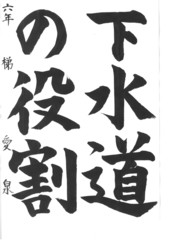 下水道
の役割
六年 梯 愛泉